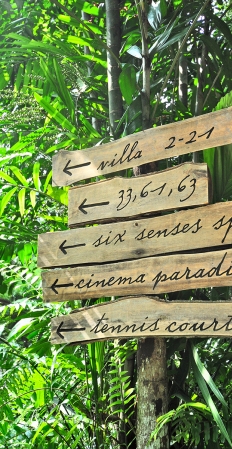 ← villa 2-21
← 33, 61, 63
← six senses sp
← cinema paradi
← tennis court